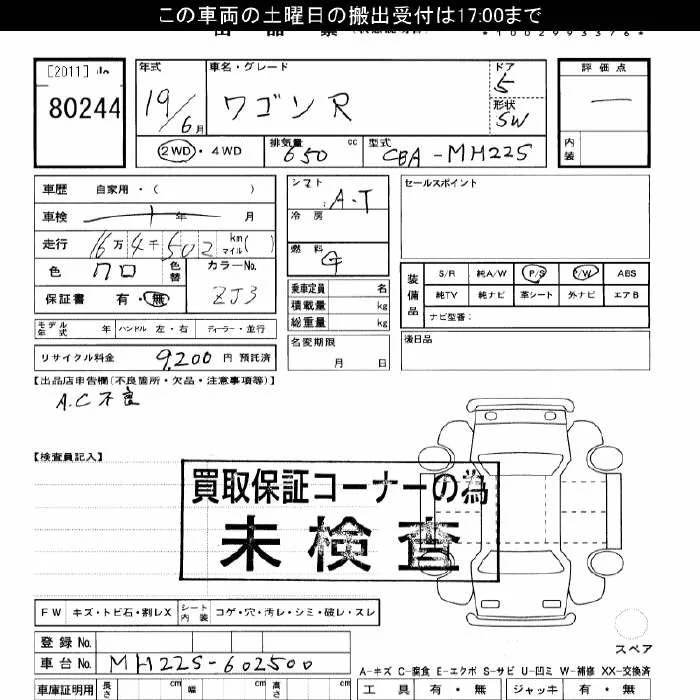 この車両の土曜日の搬出受付は17:00まで
*1002993376*
[2011]
80244
年式
19/6月
車名・グレード
ワゴンR
ドア
5
形状
SW
評価点
一
内装
2WD・4WD
排気量 650 cc
型式 CBA-MH22S
車歴 自家用・( )
車検 年 月
走行 16万4千502 km マイル( )
色 クロ 色替
カラーNo.
ZJ3
保証書 有・無
シフト
A-T
冷房
燃料
G
乗車定員 名
積載量 kg
総重量 kg
名変期限
月 日
セールスポイント
装備品
S/R 純A/W P/S P/W ABS
純TV 純ナビ 革シート 外ナビ エアB
ナビ型番:
後日品
モデル年式 年 ハンドル 左・右 ディーラー・並行
リサイクル料金 9,200 円 預託済
【出品店申告欄(不良箇所・欠品・注意事項等)】
A.C不良
【検査員記入】
買取保証コーナーの為
未検査
FW キズ・トビ石・割レX シート内装 コゲ・穴・汚レ・シミ・破レ・スレ
スペア
登録 No.
車台 No. MH22S-602500
A-キズ C-腐食 E-エクボ S-サビ U-凹ミ W-補修 XX-交換済
車庫証明用 長さ cm 幅 cm 高さ cm
工具 有・無 ジャッキ 有・無